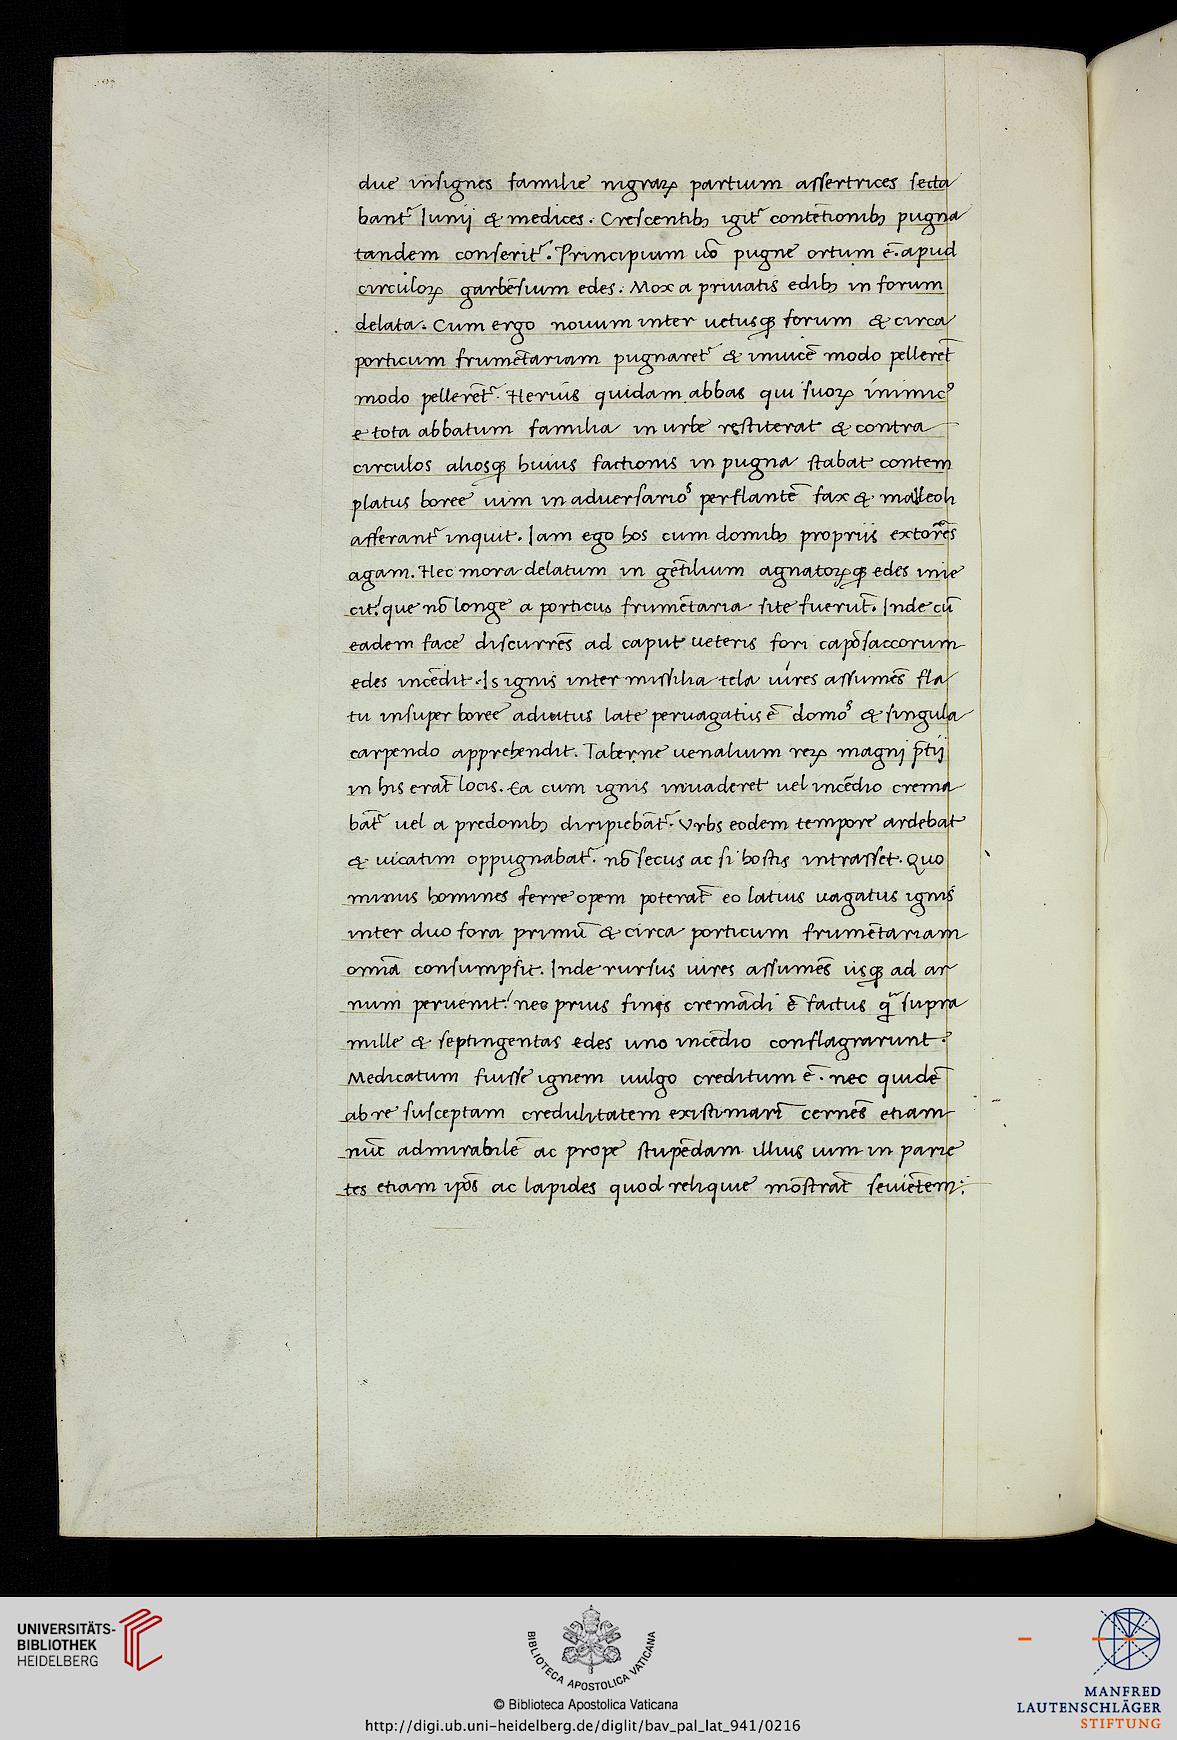 due insignes familie nigraꝝ partium assertrices secta
bant᷑ Iunij & medices. Crescentibꝫ igit᷑ contētionibꝫ pugna
tandem conserit᷑. Principium uō pugne ortum ē. apud
circuloꝝ garbēsium edes. Mox a priuatis edibꝫ in forum
delata. Cum ergo nouum inter uetusqꝫ forum & circa
porticum frumētariam pugnaret᷑ & inuicē modo pelleret̄
modo pellerēt᷑. Neriús quidam abbas qui suoꝝ inimicꝰ
e tota abbatum familia in urbe restiterat & contra
circulos aliosqꝫ huius factionis in pugna stabat contem
platus boree uim in aduersarios perflantē fax & malleoli
afferant᷑ inquit. Iam ego hos cum domibꝫ propriis extorēs
agam. Nec mora delatum in gētilium agnatoꝝqꝫ edes inie
cit. que nō longe a porticus frumētaria site fuerūt. Inde cū
eadem face discurrēs ad caput ueteris fori capōsaccorum
edes incēdit. Is ignis inter missilia tela uires assumēs fla
tu insuper boree adiutus late peruagatus ē domos & singula
carpendo apprehendit. Taberne uenalium reꝝ magnj p̄tij
in his erat̄ locis. Ea cum ignis inuaderet uel incēdio crema
bāt᷑ uel a predonibꝫ diripiebāt᷑. Vrbs eodem tempore ardebat
& uicatim oppugnabat᷑. nō secus ac si hostis intrasset. Quo
minus homines ferre opem poterāt eo latius uagatus ignis
inter duo fora primū & circa porticum frumētariam
omīa consumpsit. Inde rursus uires assumēs usqꝫ ad ar
num peruenit. nec prius finis cremādi ē factus qᷓ supra
mille & septingentas edes uno incēdio conflagrarunt.
Medicatum fuisse ignem uulgo creditum ē. nec quidē
ab re susceptam credulitatem existimarī cernēs etiam
nūc admirabilē ac prope stupēdam illius uim in parie
tes etiam ip̄os ac lapides quod reliquie mōstrāt seuiētem:
UNIVERSITÄTS-
BIBLIOTHEK
HEIDELBERG
BIBLIOTECA APOSTOLICA VATICANA
© Biblioteca Apostolica Vaticana
http://digi.ub.uni-heidelberg.de/diglit/bav_pal_lat_941/0216
MANFRED
LAUTENSCHLÄGER
STIFTUNG